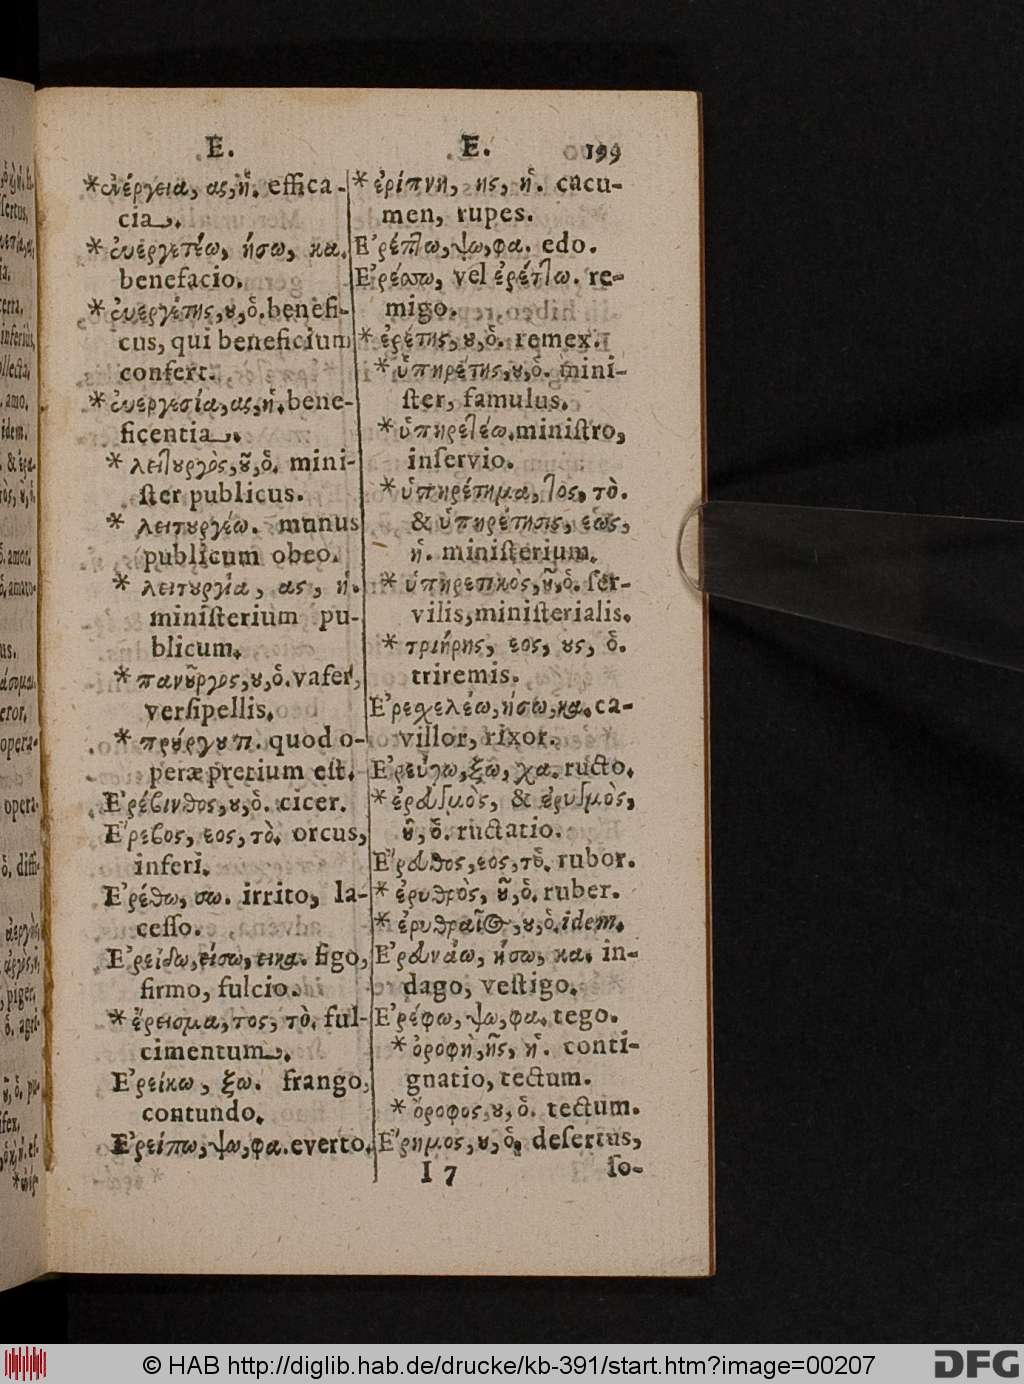 E.
*ἐνέργεια, ας, ἡ. effica-
cia.
*ἐυεργετέω, ήσω, κα.
benefacio.
*ἐυεργέτης, ȣ, ὁ. benefi-
cus, qui beneficium
confert.
*ἐυεργεσία, ας, ἡ. bene-
ficentia.
*λειτȣργὸς, ȣ͂, ὁ. mini-
ſter publicus.
*λειτȣργέω. munus
publicum obeo.
*λειτȣργία, ας, ἡ.
miniſterium pu-
blicum.
*πανȣ͂ργος, ȣ, ὁ. vafer,
verſipellis.
*πρȣ́ργȣ π. quod o-
peræ pretium eſt.
Ἐρέβινθος, ȣ, ὁ. cicer.
Ἔρεβος, εος, τὸ. orcus,
inferi.
Ἐρέθω, σω. irrito, la-
ceſſo.
Ἐρείδω, είσω, εικα. figo,
firmo, fulcio.
*ἔρεισμα, τος, τὸ. ful-
cimentum.
Ἐρείκω, ξω. frango,
contundo.
Ἐρείπω, ψω, φα. everto.
E. 199
*ἐρίπνη, ης, ἡ. cacu-
men, rupes.
Ἐρέπτω, ψω, φα. edo.
Ἐρέσσω, vel ἐρέττω. re-
migo.
*ἐρέτης, ȣ, ὁ. remex.
*ὑπηρέτης, ȣ, ὁ. mini-
ſter, famulus.
*ὑπηρετέω. miniſtro,
inſervio.
*ὑπηρέτημα, τος, τὸ.
& ὑπηρέτησις, εως,
ἡ. miniſterium.
*ὑπηρετικὸς, ȣ͂, ὁ. ſer-
vilis, miniſterialis.
*τριήρης, εος, ȣς, ὁ.
triremis.
Ἐρεσχελέω, ήσω, κα. ca-
villor, rixor.
Ἐρεύγω, ξω, χα. ructo.
*ἐρευγμὸς, & ἐρυγμὸς,
ȣ͂, ὁ. ructatio.
Ἔρευθος, εος, τὸ. rubor.
*ἐρυθρὸς, ȣ͂, ὁ. ruber.
*ἐρυθραῖος, ȣ, ὁ. idem.
Ἐρευνάω, ήσω, κα. in-
dago, veſtigo.
Ἐρέφω, ψω, φα. tego.
*ὀροφὴ, ῆς, ἡ. conti-
gnatio, tectum.
*ὄροφος, ȣ, ὁ. tectum.
Ἔρημος, ȣ, ὁ. deſertus,
I 7 ſo-
© HAB http://diglib.hab.de/drucke/kb-391/start.htm?image=00207
DFG